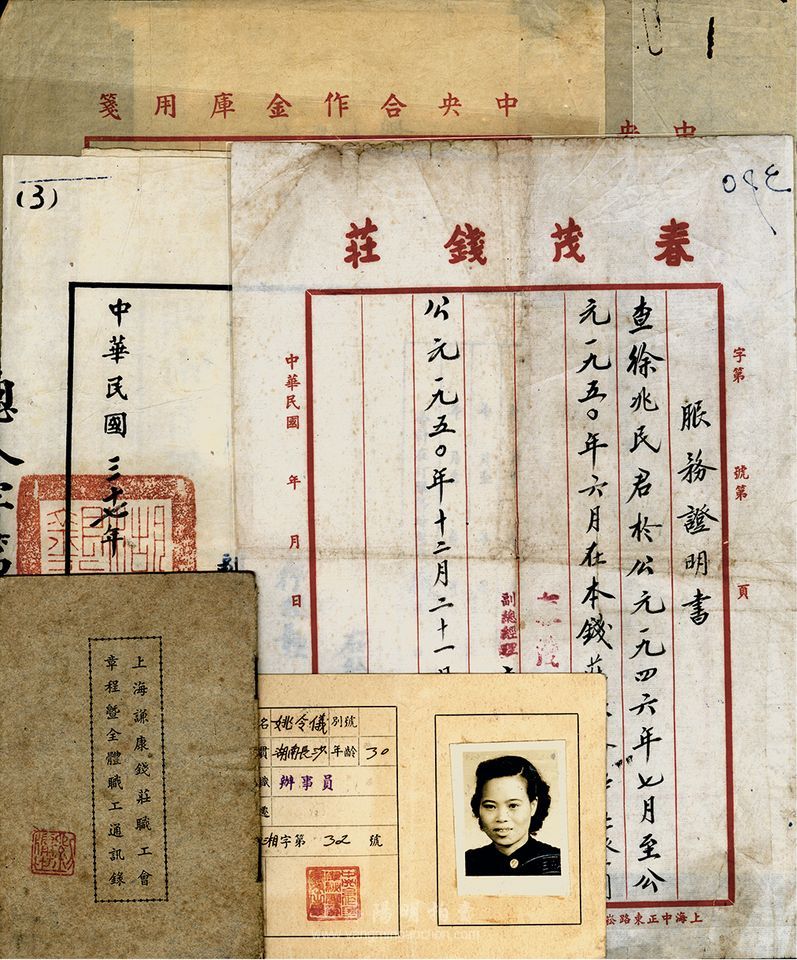 中央合作金庫用箋
中央
(3)
中華民國三十七年
390
春茂錢莊
字第 號第 頁
服務證明書
查徐兆民君於公元一九四六年七月至公
元一九五〇年六月在本錢莊
公元一九五〇年十二月二十一日
副總經理
中華民國 年 月 日
上海中正東路
上海謙康錢莊職工會
章程暨全體職工通訊錄
名 姚令儀 別號
貫 湖南長沙 年齡 30
職 辦事員
湘字第 32 號
陽明拍賣
www.yangmingauction.com